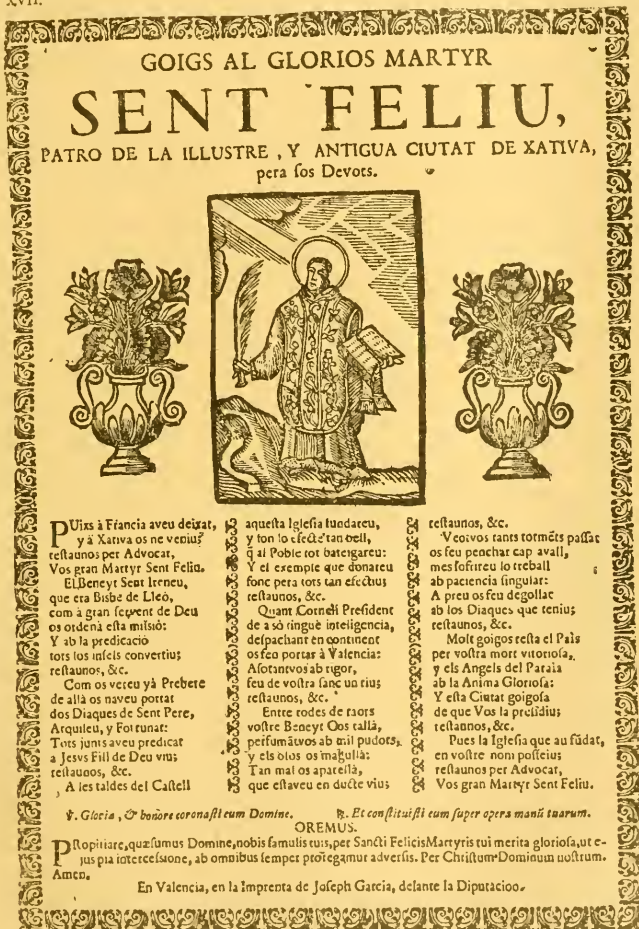 XVII.
GOIGS AL GLORIOS MARTYR
SENT FELIU,
PATRO DE LA ILLUSTRE, Y ANTIGUA CIUTAT DE XATIVA,
pera sos Devots.
PUixs à Francia aveu deixat,
y à Xativa os ne veniu?
restaunos per Advocat,
Vos gran Martyr Sent Feliu.
El Beneyt Sent Ireneu,
que era Bisbe de Lleò,
com à gran servent de Deu
os ordenà esta missiò:
Y ab la predicaciò
tots los infels convertiu;
restaunos, &c.
Com os vereu yà Prebere
de allà os naveu portat
dos Diaques de Sent Pere,
Arquileu, y Fortunat:
Tots junts aveu predicat
a Jesvs Fill de Deu viu;
restaunos, &c.
A les faldes del Castell
aquesta Iglesia fundareu,
y fon lo efecte tan bell,
q̃ al Poble tot batejareu:
Y el exemple que donareu
fonc pera tots tan efectius
restaunos, &c.
Quant Corneli President
de açò tinguè inteligencia,
despachant en continent
os feu portar à Valencia:
Asotantvos ab rigor,
feu de vostra sanc un riu;
restaunos, &c.
Entre rodes de raors
vostre Beneyt Cos tallà,
perfumãtvos ab mil pudors,
y els olos os magullà:
Tan mal os aparellà,
que estaveu en ducte viu;
restaunos, &c.
Veotvos tants tormẽts passat
os feu penchar cap avall,
mes sofrireu lo treball
ab paciencia singular:
A preu os feu degollar
ab los Diaques que teniu;
restaunos, &c.
Molt goigos resta el Païs
per vostra mort vitoriosa,
y els Angels del Parais
ab la Anima Gloriosa:
Y esta Ciutat goigosa
de que Vos la presidiu;
restaunos, &c.
Pues la Iglesia que au fũdat,
en vostre nom posseiu;
restaunos per Advocat,
Vos gran Martyr Sent Feliu.
℣. Gloria, & honore coronasti eum Domine. ℟. Et constituisti eum super opera manũ tuarum.
OREMUS.
PRopitiare, quæsumus Domine, nobis famulis tuis, per Sancti Felicis Martyris tui merita gloriosa, ut e-
jus pia intercessione, ab omnibus semper protegamur adversis. Per Christum Dominum nostrum.
Amen.
En Valencia, en la Imprenta de Joseph Garcia, delante la Diputacion.